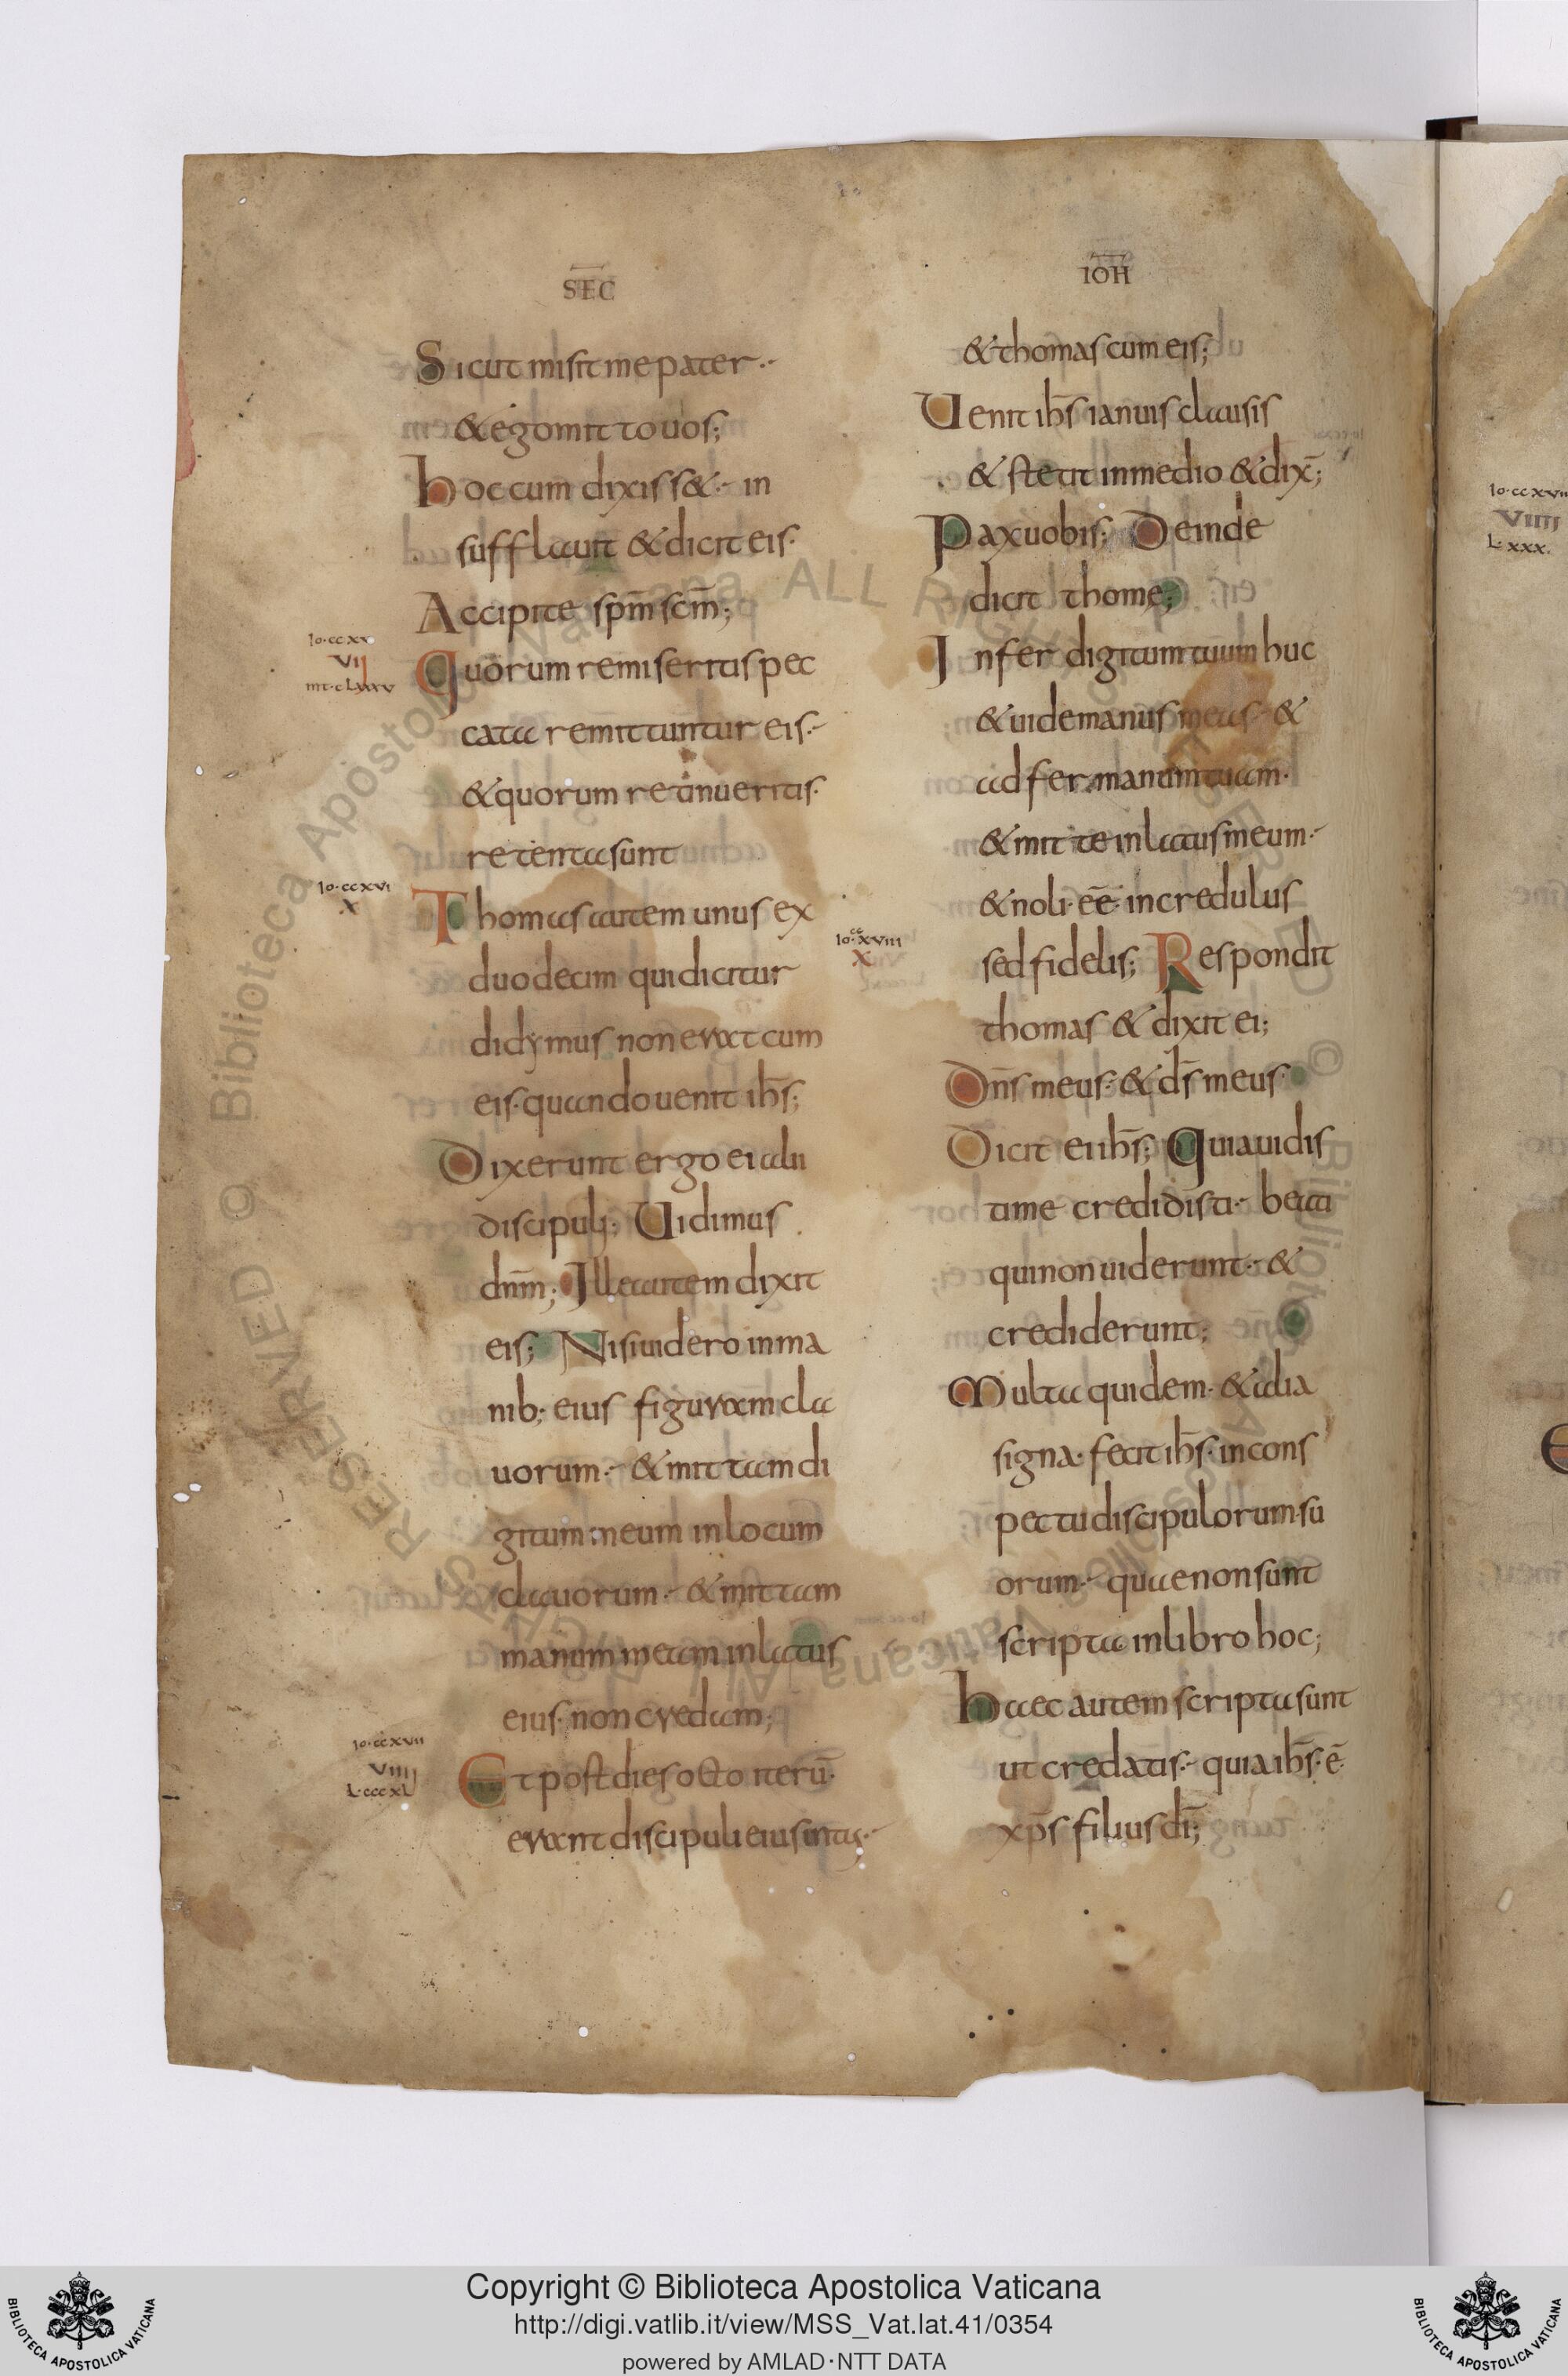 SEC̅
Sicut misit me pater·
& ego mitto uos;
hoc cum dixiss&· in
sufflauit & dicit eis·
Accipite sp̅m sc̅m;
Io·ccxv
VII
mt·clxxxv
Quorum remiseritis pec
cata remittuntur eis·
& quorum retinueritis·
retenta sunt
Io·ccxvi
X
Thomas autem unus ex
duodecim qui dicitur
didymus non erat cum
eis· quando uenit ih̅s;
Dixerunt ergo ei alii
discipuli; Uidimus
dn̅m; Ille autem dixit
eis; Nisi uidero in ma
nib; eius figuram cla
uorum· & mittam di
gitum meum in locum
clauorum· & mittam
manum meam in latus
eius· non credam;
Io·ccxvii
VIIII
L·cccxl
Et post dies octo iterū·
erant discipuli eius intus·
IOH̅
& thomas cum eis;
Uenit ih̅s ianuis clausis
& stetit in medio & dix̅;
Pax uobis; Deinde
dicit thome;
Infer digitum tuum huc
& uide manus meas· &
adfer manum tuam·
& mitte in latus meum·
& noli· ee̅· incredulus
Io·ccxviii
X
sed fidelis; Respondit
thomas & dixit ei;
Dn̅s meus· & ds̅ meus·
Dicit ei ih̅s; Quia uidis
ti me credidisti· beati
qui non uiderunt· &
crediderunt;
Multa quidem· & alia
signa· fecit ih̅s· in cons
pectu discipulorum su
orum· quae non sunt
scripta in libro hoc;
haec autem scripta sunt
ut credatis· quia ih̅s· ē·
xp̅s filius di̅;
Io·ccxvii
VIIII
L·xxx·
© Biblioteca Apostolica Vaticana ALL RIGHTS RESERVED
© Biblioteca Apostolica Vaticana ALL RIGHTS RESERVED
BIBLIOTECA APOSTOLICA VATICANA
Copyright © Biblioteca Apostolica Vaticana
http://digi.vatlib.it/view/MSS_Vat.lat.41/0354
powered by AMLAD·NTT DATA
BIBLIOTECA APOSTOLICA VATICANA